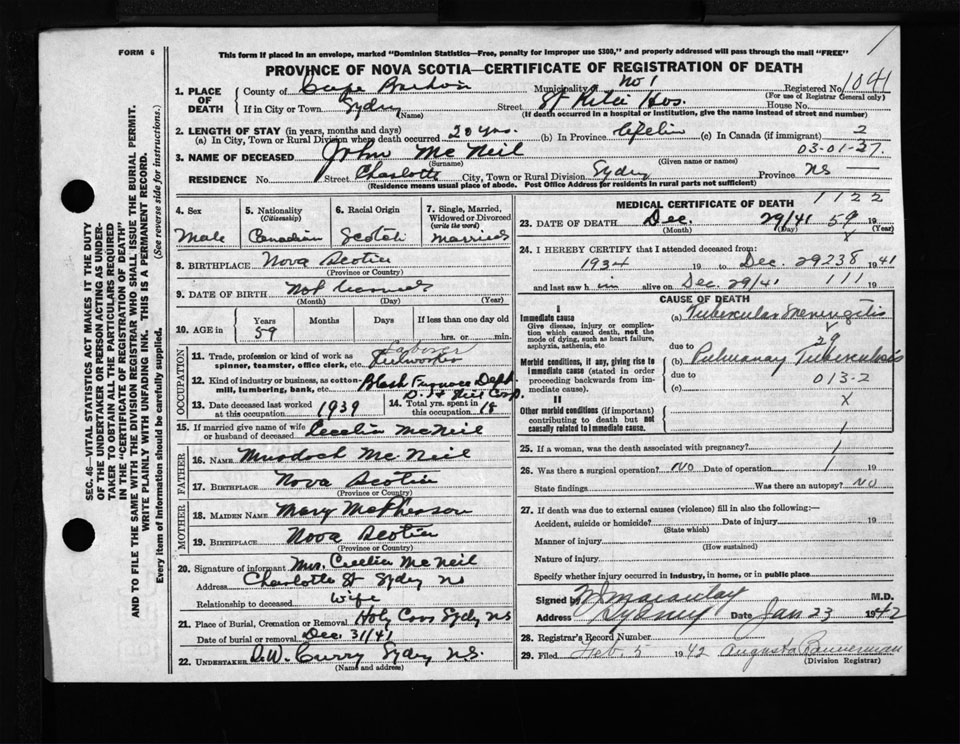 FORM 6
This form if placed in an envelope, marked "Dominion Statistics—Free, penalty for improper use $300," and properly addressed will pass through the mail "FREE"
PROVINCE OF NOVA SCOTIA—CERTIFICATE OF REGISTRATION OF DEATH
1. PLACE OF DEATH County of Cape Breton Municipality No 1 Registered No. 1041
(For use of Registrar General only)
If in City or Town Sydney (Name) Street St Rita Hos. House No.
(If death occurred in a hospital or institution, give its name instead of street and number)
2. LENGTH OF STAY (in years, months and days)
(a) In City, Town or Rural Division where death occurred 20 yrs. (b) In Province (c) In Canada (if immigrant) 2
3. NAME OF DECEASED John McNeil 03-01-37.
(Surname) (Given name or names)
RESIDENCE No. Street Charlotte City, Town or Rural Division Sydney Province NS
(Residence means usual place of abode. Post Office Address for residents in rural parts not sufficient)
4. Sex Male
5. Nationality (Citizenship) Canadian
6. Racial Origin Scotch
7. Single, Married, Widowed or Divorced (write the word) Married
8. BIRTHPLACE Nova Scotia
(Province or Country)
9. DATE OF BIRTH Not
(Month) (Day) (Year)
10. AGE in Years Months Days If less than one day old
59 hrs. or min.
OCCUPATION
11. Trade, profession or kind of work as spinner, teamster, office clerk, etc. Laborer Steelworker
12. Kind of industry or business, as cotton-mill, lumbering, bank, etc. Blast Furnace Dept. D. I & Steel Corp.
13. Date deceased last worked at this occupation 1939
14. Total yrs. spent in this occupation 18
15. If married give name of wife or husband of deceased Cecelia McNeil
FATHER
16. NAME Murdoch McNeil
17. BIRTHPLACE Nova Scotia
(Province or Country)
MOTHER
18. MAIDEN NAME Mary McPherson
19. BIRTHPLACE Nova Scotia
(Province or Country)
20. Signature of informant Mrs. Cecelia McNeil
Address Charlotte St Sydney NS
Relationship to deceased wife
21. Place of Burial, Cremation or Removal Holy Cross Sydney NS
Date of burial or removal Dec. 31/41
22. UNDERTAKER D.W. Curry Sydney NS.
(Name and address)
MEDICAL CERTIFICATE OF DEATH 1122
23. DATE OF DEATH Dec. 29/41 59 19
(Month) (Day) x (Year)
24. I HEREBY CERTIFY that I attended deceased from:
1934 19 to Dec. 29 238 1941
and last saw him alive on Dec. 29/41 111 19
CAUSE OF DEATH
I
Immediate cause
Give disease, injury or complication which caused death, not the mode of dying, such as heart failure, asphyxia, asthenia, etc.
(a) Tubercular Meningitis
due to 29
Morbid conditions, if any, giving rise to immediate cause (stated in order proceeding backwards from immediate cause).
(b) Pulmonary Tuberculosis
due to 013-2
(c)
II
Other morbid conditions (if important) contributing to death but not causally related to immediate cause.
x
25. If a woman, was the death associated with pregnancy?
26. Was there a surgical operation? No Date of operation 19
State findings Was there an autopsy? No
27. If death was due to external causes (violence) fill in also the following:—
Accident, suicide or homicide? Date of injury 19
(State which)
Manner of injury
(How sustained)
Nature of injury
Specify whether injury occurred in industry, in home, or in public place
Signed by Macaulay M.D.
Address Sydney Date Jan 23 1942
28. Registrar's Record Number
29. Filed Feb. 5 1942 Augusta Bannerman
(Division Registrar)
SEC. 46—VITAL STATISTICS ACT MAKES IT THE DUTY OF THE UNDERTAKER OR PERSON ACTING AS UNDERTAKER TO OBTAIN ALL THE PARTICULARS REQUIRED IN THE "CERTIFICATE OF REGISTRATION OF DEATH"
AND TO FILE THE SAME WITH THE DIVISION REGISTRAR WHO SHALL ISSUE THE BURIAL PERMIT.
WRITE PLAINLY WITH UNFADING INK. THIS IS A PERMANENT RECORD.
Every item of information should be carefully supplied. (See reverse side for instructions.)